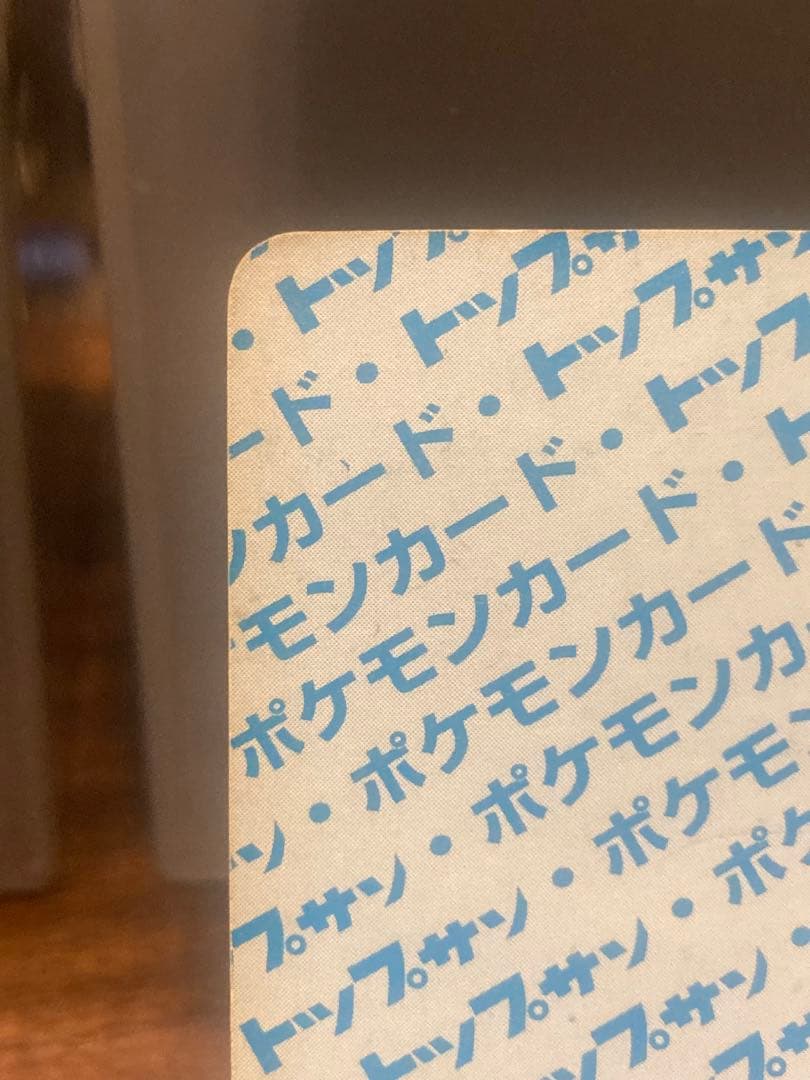 ・トップ
ード・トップサ
ンカード・トップサン
モンカード・トップ
ポケモンカード・ト
ン・ポケモンカード
プサン・ポケモンカ
トップサン・ポケモン
トップサン・ポケ
ップサン・
プサ